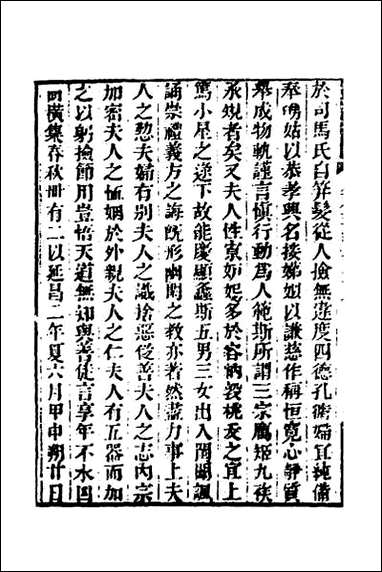 於司馬氏自笄髮從人撿無違度四德孔脩婦宜純備
奉舅姑以恭孝興名接娣姒以謙慈作稱恒寬心靜質
舉成物軌謹言慎行動為人範斯所謂三宗厲姬九族
承規者矣又夫人性寡妒娼多於容納敦桃夭之宜上
篤小星之逮下故能慶顯螽斯五男三女出入閨闈諷
誦崇禮義方之誨既形幽閒之教亦著然盡力事上夫
人之懃夫婦有別夫人之識捨惡從善夫人之志內宗
加密夫人之恤姻於外親夫人之仁夫人有五器而加
之以躬撿節用豈悟天道無知與善徒言享年不永凶
啚橫集春秋卌有二以延昌二年夏六月甲申朔廿日